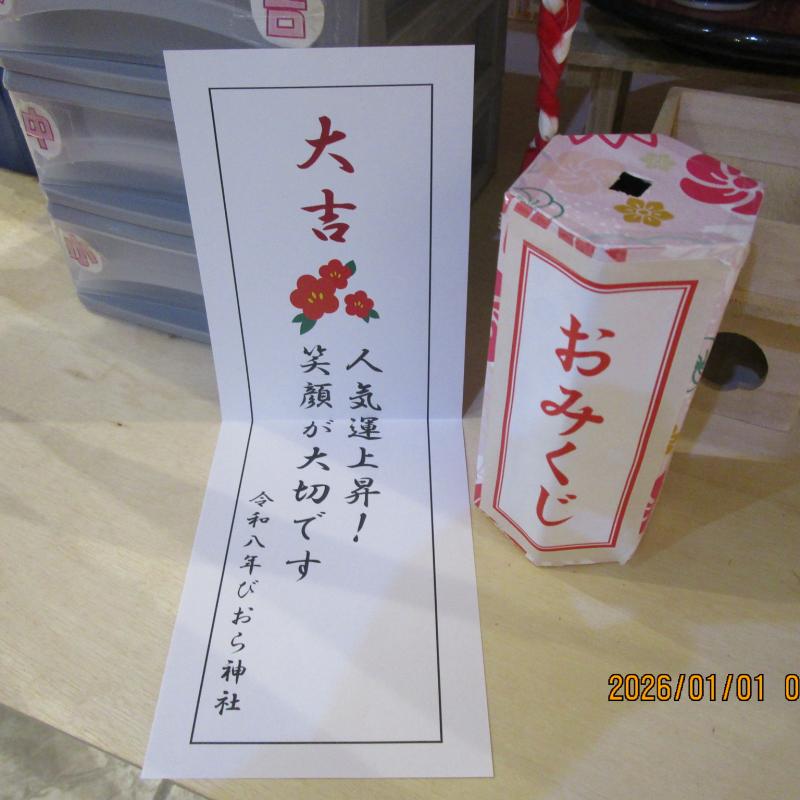 吉
中
小
大吉
人気運上昇!
笑顔が大切です
令和八年びおら神社
おみくじ
2026/01/01 0